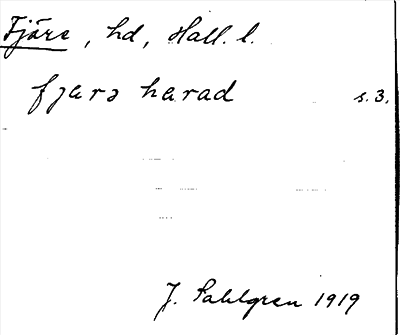 Fjäre, hd, Hall. l.
fjarə harad s. 3.
J. Sahlgren 1919